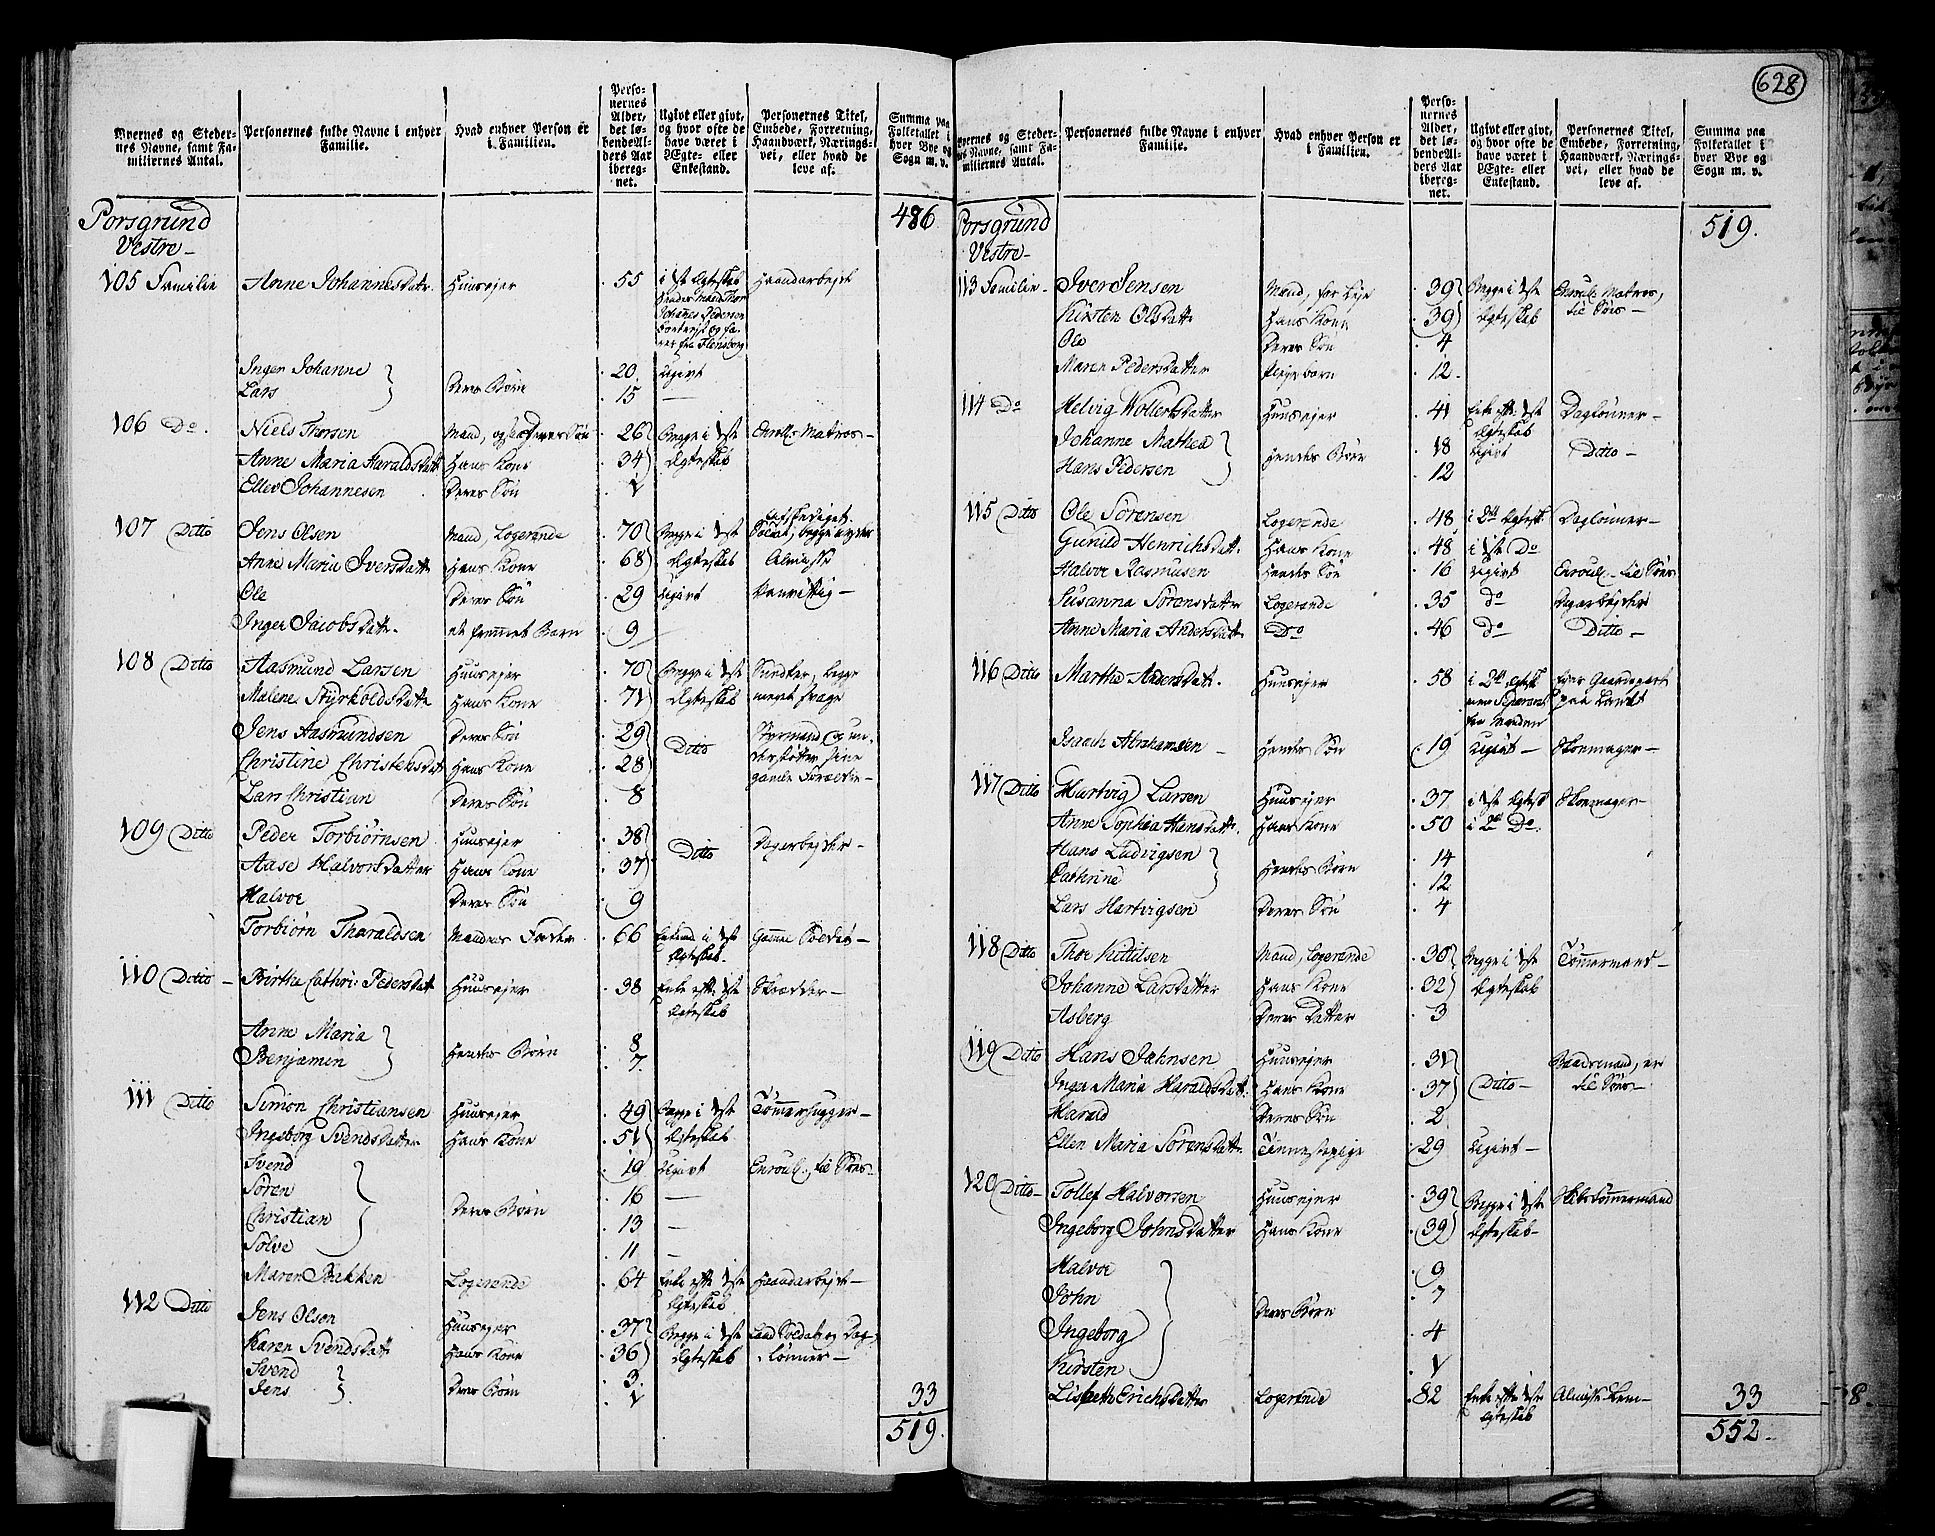 628
Byernes og Steder-
nes Navne, samt Fa-
miliernes Antal.
Personernes fulde Navne i enhver
Familie.
Hvad enhver Person er
i Familien.
Perso-
nernes
Alder,
det lø-
bende Al-
ders Aar
ibereg-
net.
Ugivt eller givt,
og hvor ofte de
have været i
Ægte- eller
Enkestand.
Personernes Titel,
Embede, Forretning,
Haandværk, Nærings-
vei, eller hvad de
leve af.
Summa paa
Folketallet i
hver Bye og
Sogn m. v.
Porsgrund 486
Vestre
105 Familie Anne Johannesdatr. Huusejer 55 i 1ste Egteskab Haandarbejde
Inger Johanne 20 Ugivt
Lars Deres Børn 15 —
106 Do. Niels Thorsen Mand, 26 Begge i 1ste Enroll. Matros
Anne Maria Haraldsdatt Hans Kone 34 Egteskab
Ellev Johannesen Deres Søn 1
107 Ditto Jens Olsen Mand, Logerende 70 Begge i 1ste
Anne Maria Iversdatt Hans Kone 68 Egteskab Almisse
Ole Deres Søn 29 Ugivt Vanvittig
Inger Jacobsdattr. et fremmet Barn 9
108 Ditto Aasmund Larsen Huusejer 70 Begge i 1ste
Malene Styrkoldsdatte Hans Kone 71 Egteskab meget svage
Jens Aasmundsen Deres Søn 29 Ditto Styrmand
Christine Christensdat Hans Kone 28
Lars Christian Deres Søn 8 gamle Forældre
109 Ditto Peder Torbiørnsen Huusejer 38 Ditto Dagarbejder
Aase Halvorsdatter Hans Kone 37
Halvor Deres Søn 9
Torbiørn Tharaldsen Mandens Fader 66 Enkem i 1ste Gamme Soldat
Egteskab
110 Ditto Birthe Cathri: Pedersdat Huusejer 38 Enke efte 1ste
Egteskab
Anne Maria 8
Benjamin Hendes Børn 7
111 Ditto Simon Christiansen Huusejer 49 Begge i 1ste Tømmerhugger
Ingeborg Svendsdatter Hans Kone 51 Egteskab
Svend 19 Ugivt Enroul. til Søes
Søren 16 —
Christian Deres Børn 13 —
Solve 11 —
Maren Bakken Logerende 64 Enke efte 1ste Haandarbejde
Egteskab
112 Ditto Jens Olson Huusejer 37 Begge i 1ste Land Soldat og Dag-
Karen Svendsdatt Hans Kone 36 Egteskab lønner
Svend 3
Jens Deres Børn 1
33
519.
Byernes og Steder-
nes Navne, samt Fa-
miliernes Antal.
Personernes fulde Navne i enhver
Familie.
Hvad enhver Person er
i Familien.
Perso-
nernes
Alder,
det lø-
bende Al-
ders Aar
ibereg-
net.
Ugivt eller givt,
og hvor ofte de
have været i
Ægte- eller
Enkestand.
Personernes Titel,
Embede, Forretning,
Haandværk, Nærings-
vei, eller hvad de
leve af.
Summa paa
Folketallet i
hver Bye og
Sogn m. v.
Porsgrund 519.
Vestre
113 Familie Iver Jensen Mand, for Leje 39 Begge i 1ste Enroul. Matros,
Kirsten Olsdatte Hans Kone 39 Egteskab til Søes
Ole Deres Søn 4
Maren Pedersdatter Plejebarn 12
114 Do Helvig Wollertsdatter Huusejer 41 Enke efte 1ste Daglønner
Egteskab
Johanne Mathea 18 Ugivt Ditto
Hans Pedersen Hendes Børn 12
115 Ditto Ole Sørensen Logerende 48 i 2det Egtesk. Daglønner
Gunild Henrichsdatt. Hans Kone 48 i 1ste Do
Halvor Rasmusen Hendes Søn 16 Ugivt Enroul. til Søes
Susanna Sørensdatter Logerende 35 do Dagarbejder
Anne Maria Andersdatt. Do 46 do Ditto
116 Ditto Marthe Andersdatt. Huusejer 58 i 2det Egtesk
Isaach Abrahamsen Hendes Søn 19 Ugivt Skoemager
117 Ditto Hartvig Larsen Huusejer 37 i 1ste Egtesk Skoemager
Anne Sophia Hansdatt. Hans Kone 50 i 2det Do.
Hans Ludvigsen 14
Cathrine Hendes Børn 12
Lars Hartvigsen Deres Søn 4
118 Ditto Thor Kittilsen Mand, Logerende 30 Begge i 1ste Tømmermand
Johanne Larsdatter Hans Kone 32 Egteskab
Asberg Deres Datter 3
119 Ditto Hans Johnsen Huusejer 31 Baadsmand, er
Inger Maria Haraldsdatt. Hans Kone 37 Ditto til Søes
Harald Deres Søn 2
Ellen Maria Sørensdatt. Tienestepige 29 Ugivt
120 Ditto Tollef Halvorsen Huusejer 39 Begge i 1ste Skibstømmermand
Ingeborg Johnsdatter Hans Kone 39 Egteskab
Halvor 9
John 7
Ingeborg Deres Børn 4
Kirsten 1
Lisbeth Erichsdatter Logerende 82 Enke efte 1ste Almisse Lem
Egteskab
33
552.